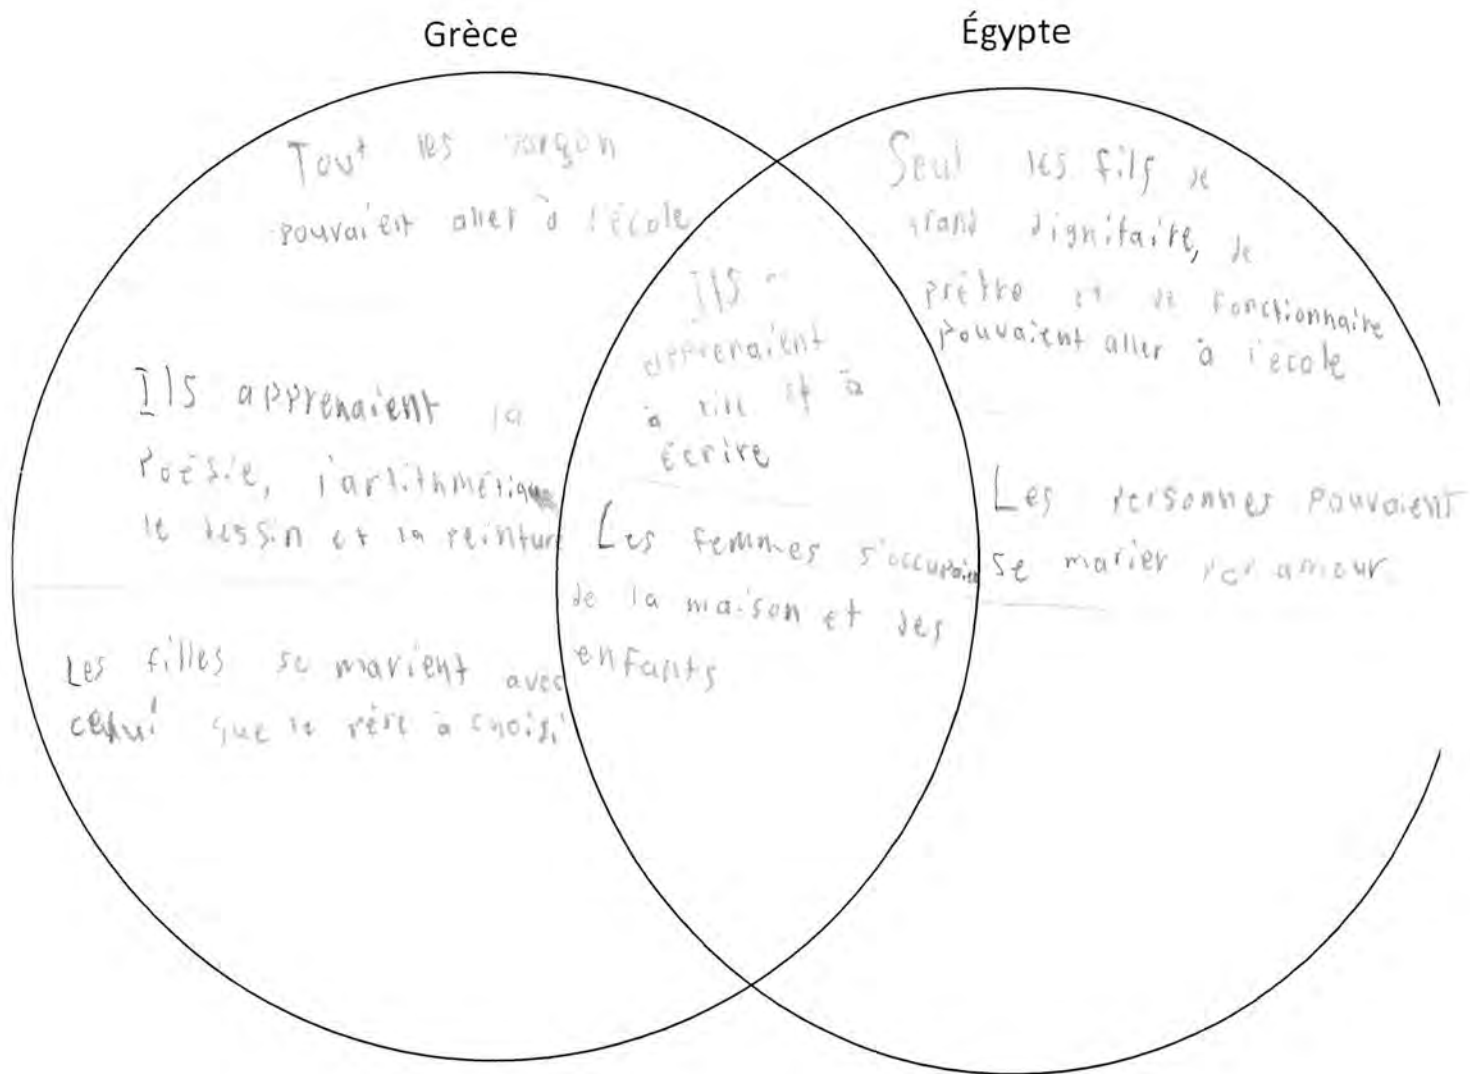 Grèce
Égypte
Tout les garçon
pouvaient aller à l'école
Ils apprenaient la
poésie, l'artithmétique
le dessin et la peinture
Les filles se marient avec
celui que le père à choisi
Ils
apprenaient
à lire et à
écrire
Les femmes s'occupaient
de la maison et des
enfants
Seul les fils de
grand dignitaire, de
prêtre et de fonctionnaire
pouvaient aller à l'école
Les personnes pouvaient
se marier par amour